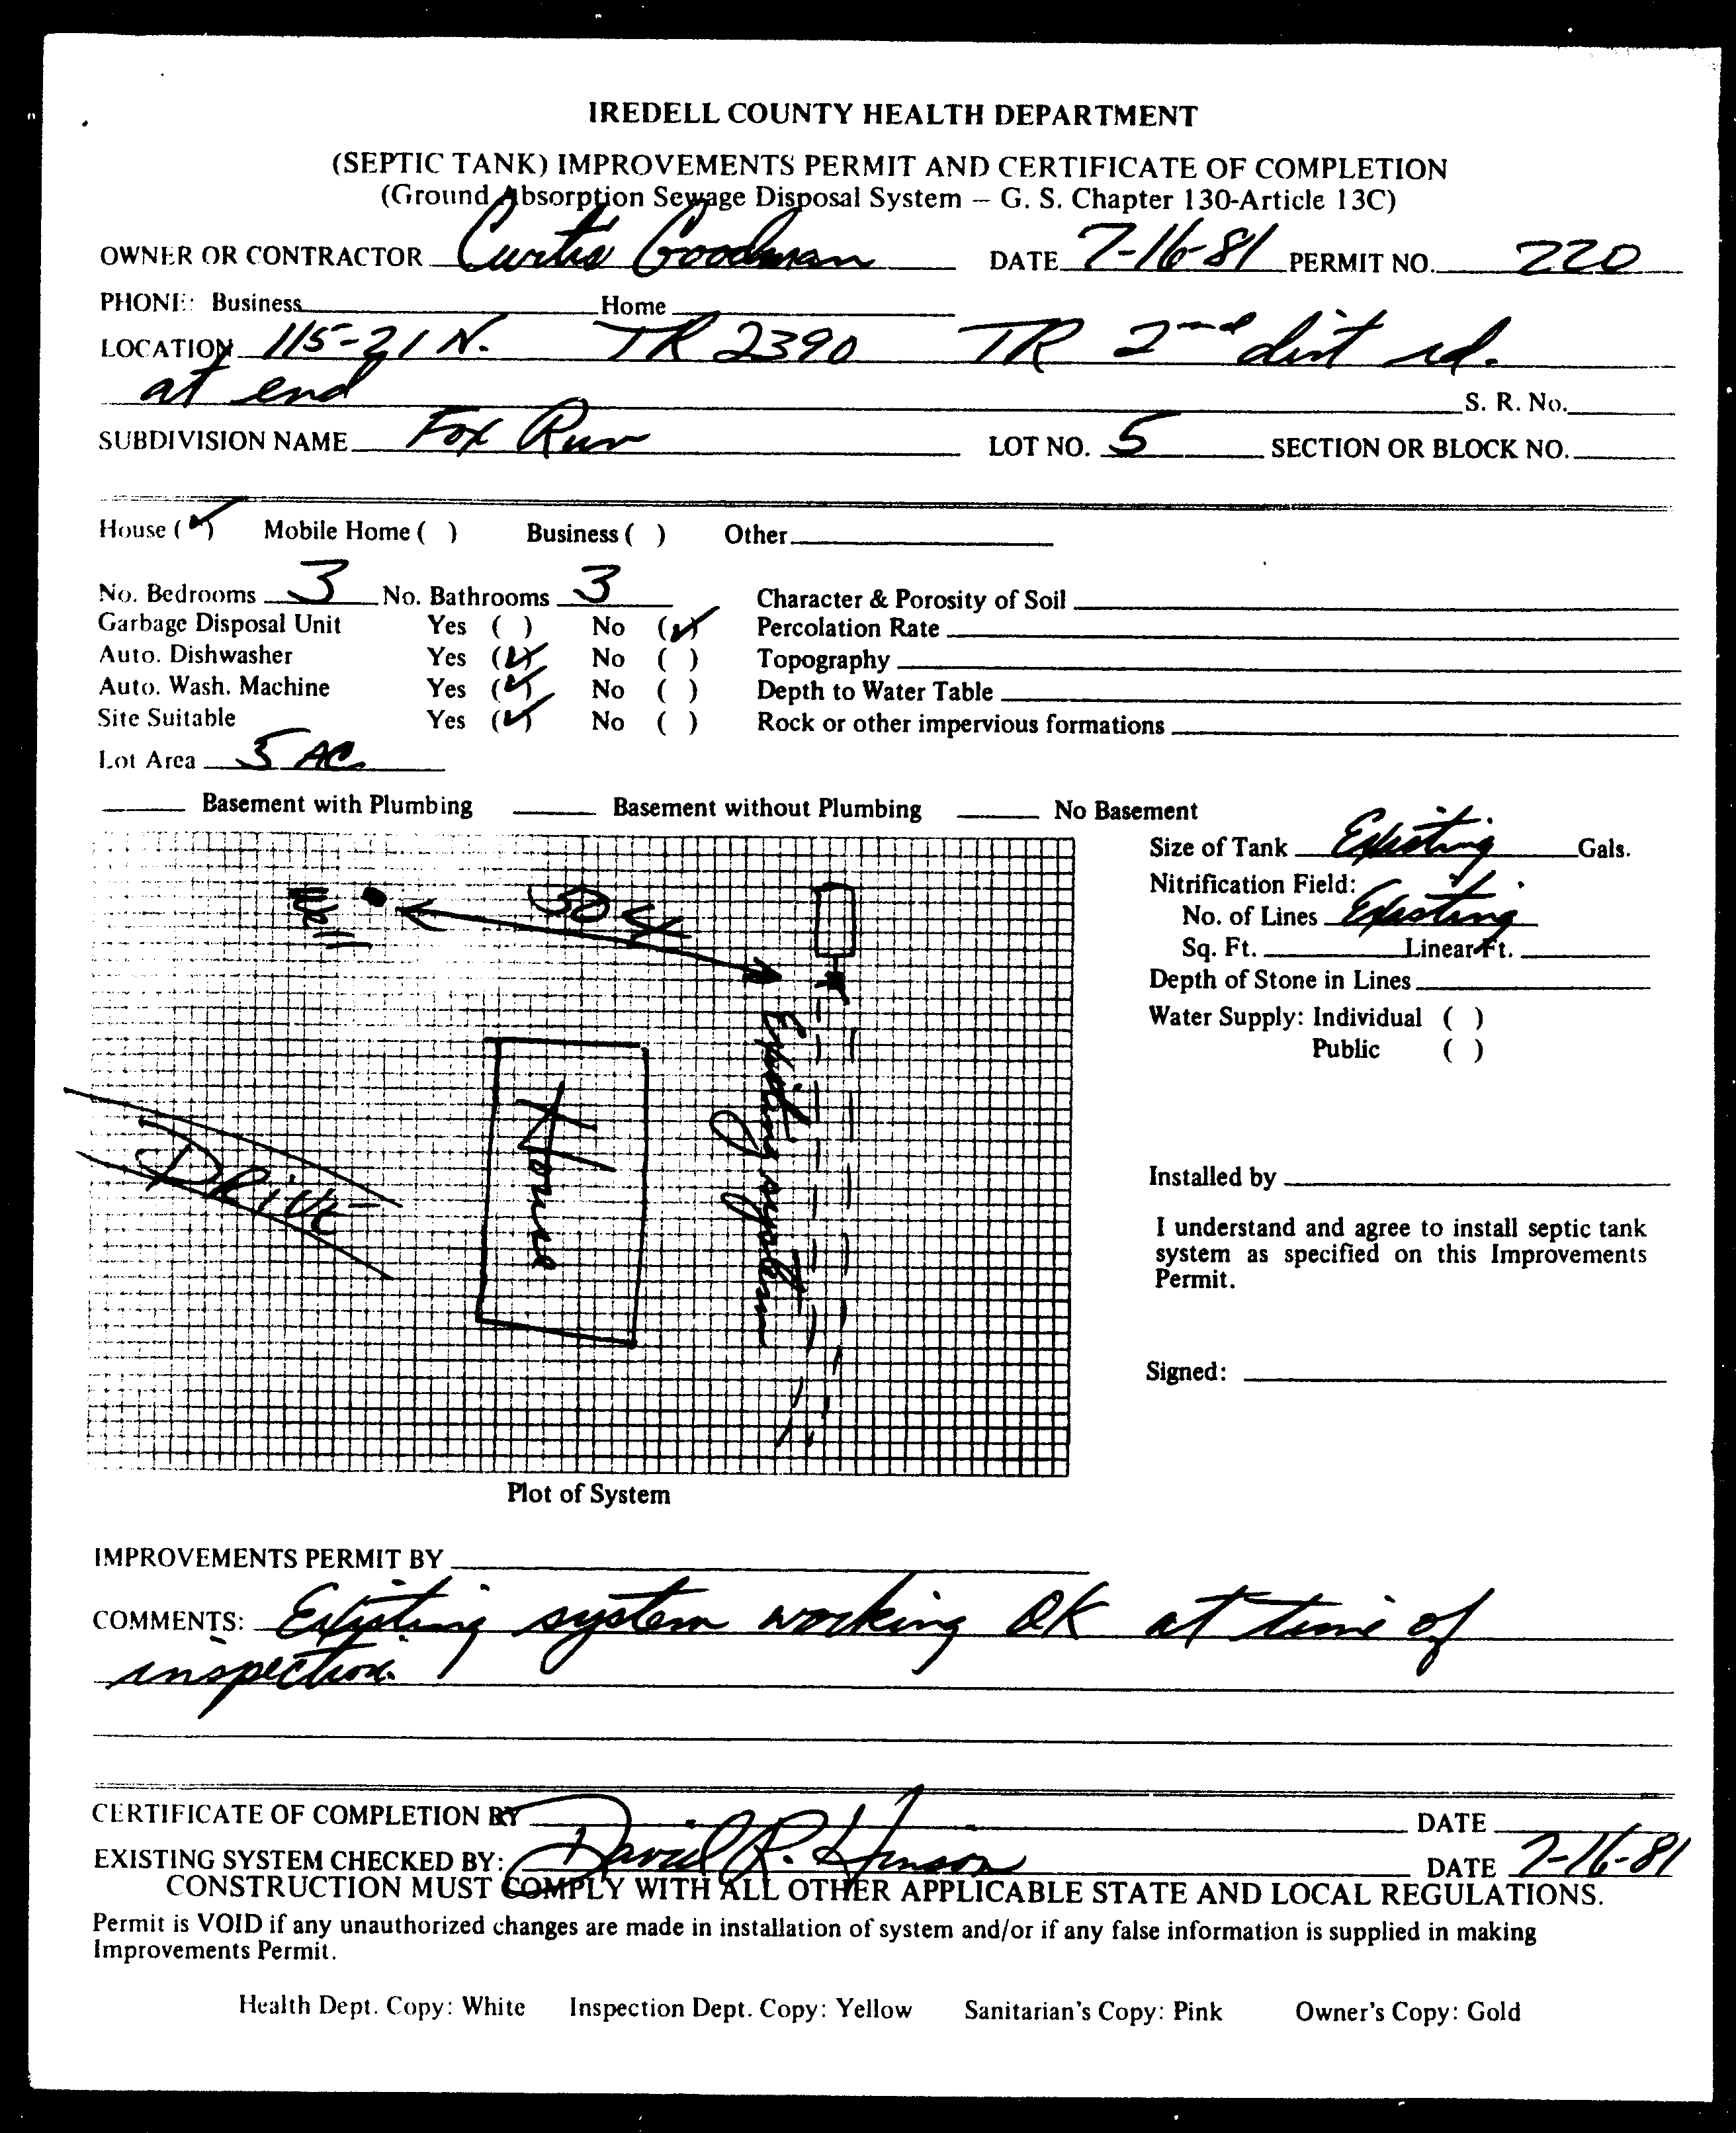 IREDELL COUNTY HEALTH DEPARTMENT
(SEPTIC TANK) IMPROVEMENTS PERMIT AND CERTIFICATE OF COMPLETION
(Ground Absorption Sewage Disposal System – G. S. Chapter 130-Article 13C)
OWNER OR CONTRACTOR Curtis Goodman DATE 7-16-81 PERMIT NO. 220
PHONE: Business Home
LOCATION 115-21 N. TR 2390 TR 2nd dirt rd.
at end S. R. No.
SUBDIVISION NAME Fox Run LOT NO. 5 SECTION OR BLOCK NO.
House (✓) Mobile Home ( ) Business ( ) Other
No. Bedrooms 3 No. Bathrooms 3 Character & Porosity of Soil
Garbage Disposal Unit Yes ( ) No (✓) Percolation Rate
Auto. Dishwasher Yes (✓) No ( ) Topography
Auto. Wash. Machine Yes (✓) No ( ) Depth to Water Table
Site Suitable Yes (✓) No ( ) Rock or other impervious formations
Lot Area 5 AC.
Basement with Plumbing Basement without Plumbing No Basement
Size of Tank Existing Gals.
Nitrification Field:
No. of Lines Existing
Sq. Ft. Linear Ft.
Depth of Stone in Lines
Water Supply: Individual ( )
Public ( )
Installed by
I understand and agree to install septic tank
system as specified on this Improvements
Permit.
Signed:
50
Existing system
House
Drive
Plot of System
IMPROVEMENTS PERMIT BY
COMMENTS: Existing system working OK at time of
inspection.
CERTIFICATE OF COMPLETION BY DATE
EXISTING SYSTEM CHECKED BY: David R. Hinson DATE 7-16-81
CONSTRUCTION MUST COMPLY WITH ALL OTHER APPLICABLE STATE AND LOCAL REGULATIONS.
Permit is VOID if any unauthorized changes are made in installation of system and/or if any false information is supplied in making
Improvements Permit.
Health Dept. Copy: White Inspection Dept. Copy: Yellow Sanitarian's Copy: Pink Owner's Copy: Gold